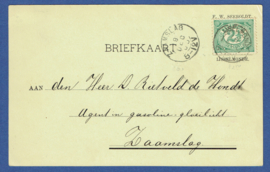 BRIEFKAART
AAN den Heer D. Rietveld de Hondt
Agent in gasoline-gloeilicht
Zaamslag